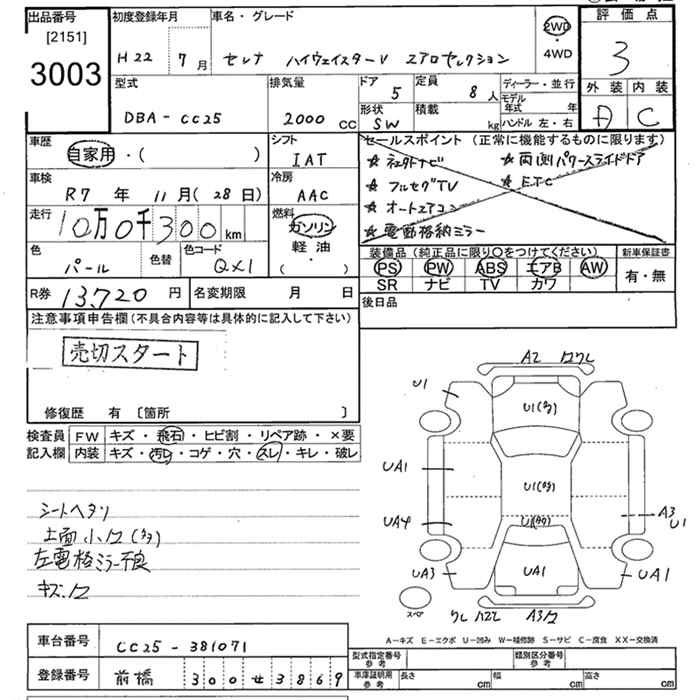 出品番号 初度登録年月 車名・グレード 評価点
[2151]
3003
H22 7月 セレナ ハイウェイスターV エアロセレクション 2WD・4WD 3
型式 排気量 ドア 定員 ディーラー・並行 外装 内装
DBA-CC25 2000cc 5 8人 モデル年式 年
形状 積載 ハンドル 左・右 A C
SW kg
車歴 シフト セールスポイント (正常に機能するものに限ります)
自家用・( ) IAT
☆ 両側パワースライドドア
車検 冷房 ☆ フルセグTV ☆ ETC
R7年 11月(28日) AAC ☆ オートエアコン
走行 燃料 ☆ 電動格納ミラー
10万0千300km ガソリン
軽油
( )
色 色替 色コード 装備品 (純正品に限り○をつけてください) 新車保証書
パール QX1 PS PW ABS エアB AW 有・無
SR ナビ TV カワ
R券 13,720円 名変期限 月 日 後日品
注意事項申告欄(不具合内容等は具体的に記入して下さい)
売切スタート
修復歴 有 [箇所 ]
検査員 FW キズ・飛石・ヒビ割・リペア跡・×要
記入欄 内装 キズ・汚レ・コゲ・穴・スレ・キレ・破レ
シートヘタリ
左電格ミラー不良
A2
U1
U1(多)
UA1
U1(多)
UA4
U1(多)
A3
U1
UA3
UA1
UA1
スペア
A-キズ E-エクボ U-凹み W-補修跡 S-サビ C-腐食 XX-交換済
車台番号 CC25-381071
型式指定番号 参考 類別区分番号 参考
登録番号 前橋 300せ3869
車庫証明用 参考 長さ cm 幅 cm 高さ cm